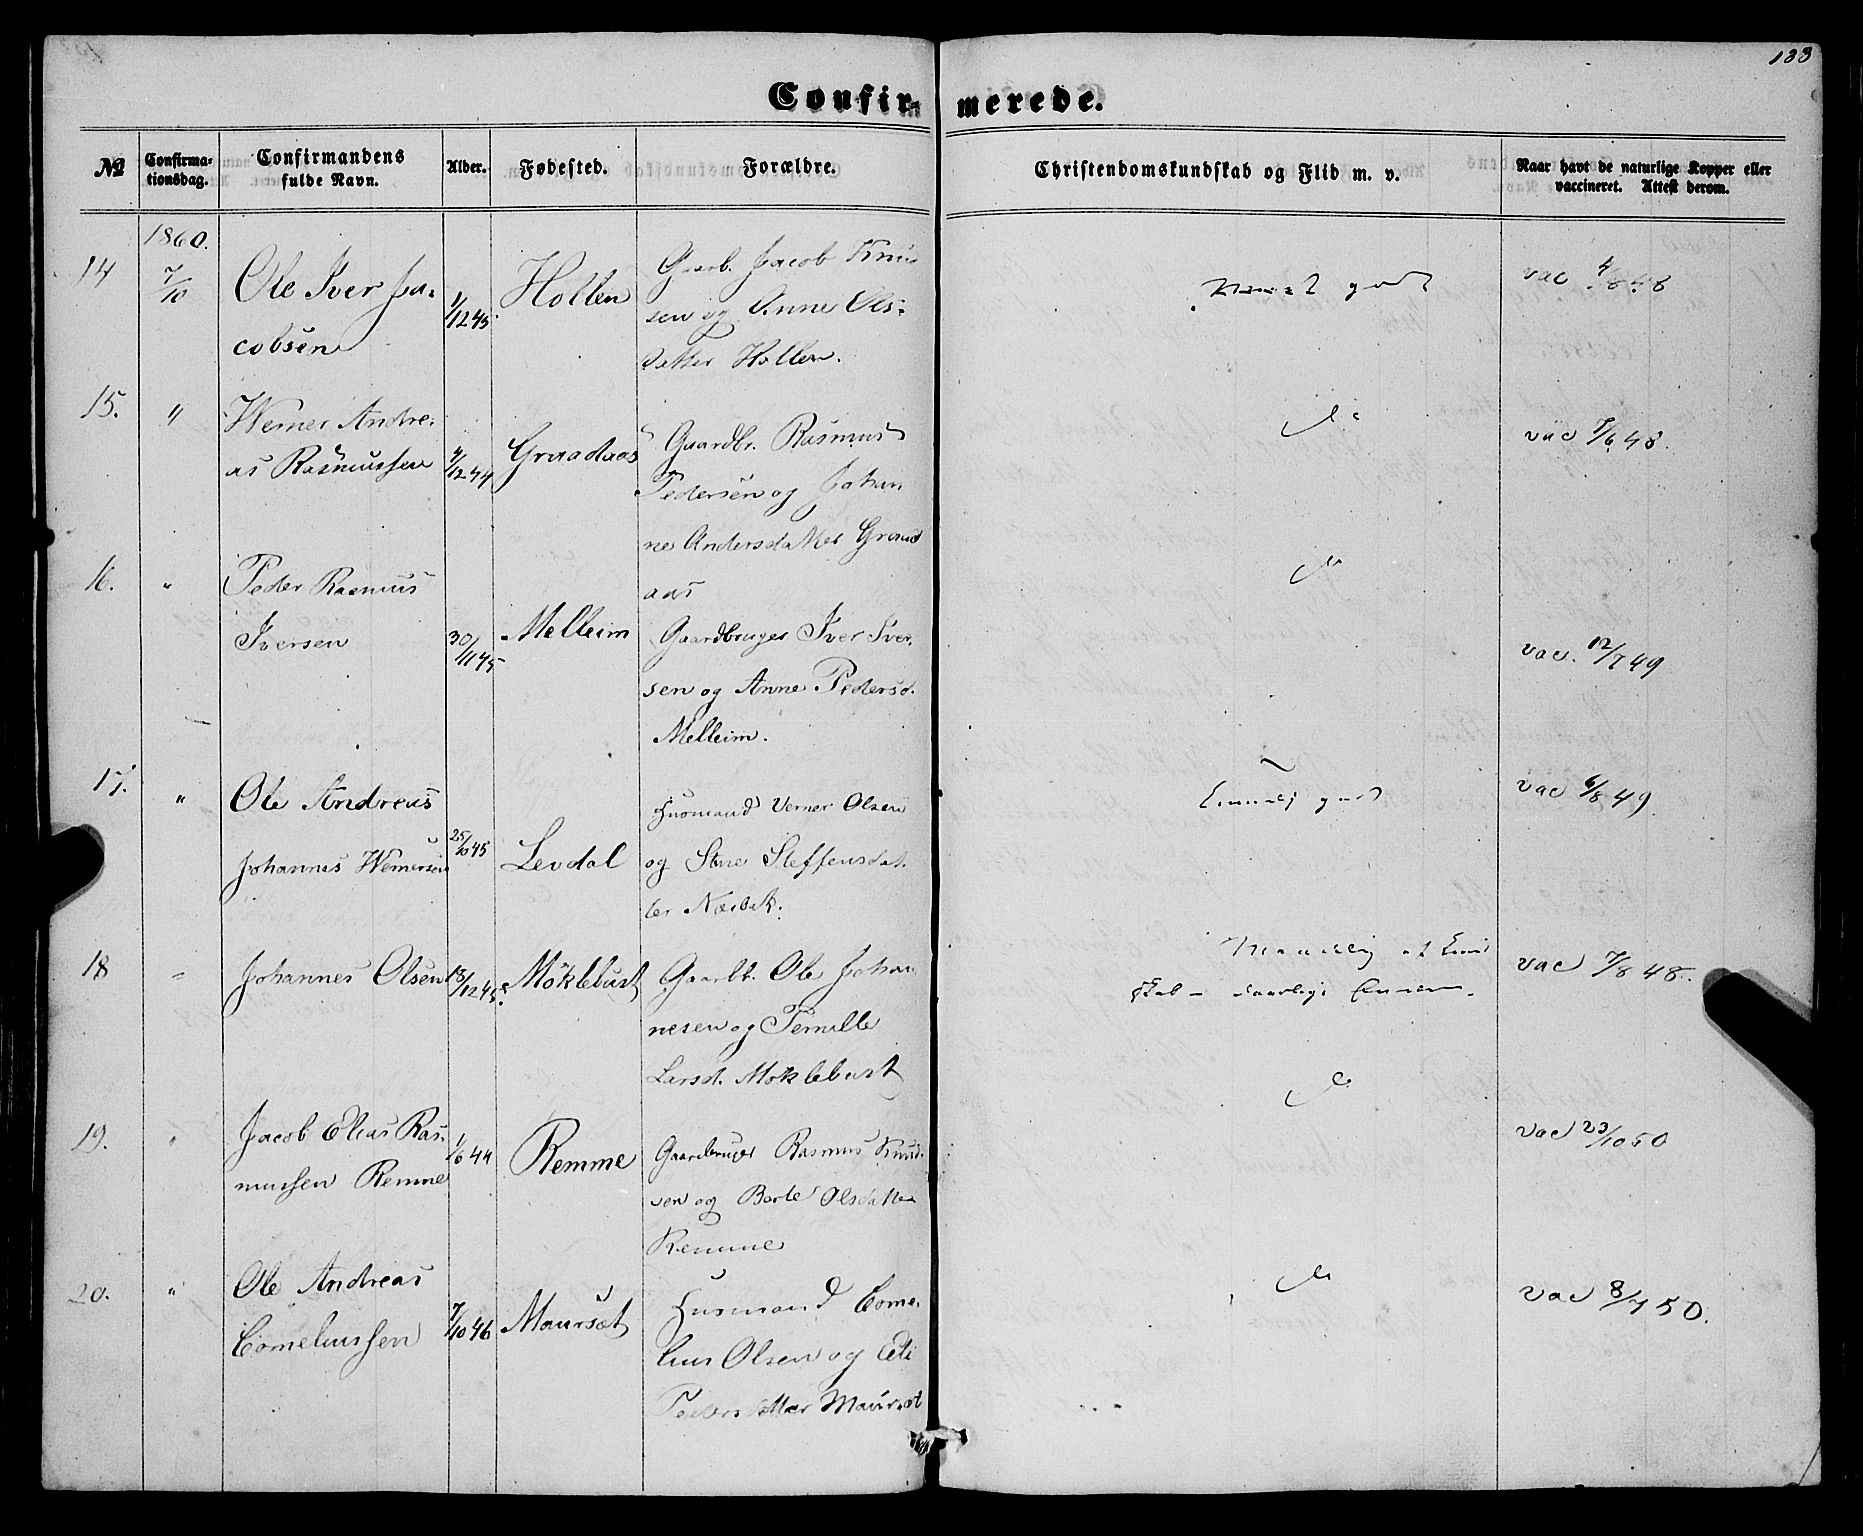 133
Confirmerede.
№
Confirma-
tionsdag.
Confirmandens
fulde Navn.
Alder.
Fødested.
Forældre.
Christendomskundskab og Flid m. v.
Naar havt de naturlige Kopper eller
vaccineret. Attest derom.
1860.
14
7/10
Ole Iver Ja-
cobsen
1/12 45
Hollen
Gaarb. Jacob Knud
sen og Anne Ols-
datter Hollen.
godt
vac 4/8 48
15.
"
Werner Andre-
as Rasmussen
4/12 44
Graadaas
Gaardbr. Rasmus
Pedersen og Johan
ne Andersdatter Graad
aas
do
vac 7/6 48.
16.
"
Peder Rasmus
Iversen
30/11 45
Melleim
Gaardbruger Iver Iver-
sen og Anne Pedersd.
Melleim.
do
vac. 12/7 49
17.
"
Ole Andreas
Johannes Wernersen
25/10 45
Levdal
Husmand Verner Olsen
og Stine Steffensdat-
ter Nærbøk.
godt
vac 6/8 49.
18
"
Johannes Olsen
13/12 45
Møklebust
Gaarbr. Ole Johan
nesen og Pernille
Larsd. Møklebust
vac 7/8 48.
19.
"
Jacob Elias Ras-
mussen Remme
1/6 44
Remme
Gaardbruger Rasmus Knud-
sen og Berte Olsdatter
Remme
do
vac 23/10 50
20.
"
Ole Andreas
Corneliussen
7/10 46
Maursæt
Husmand Corne-
lius Olsen og Eli
Pedersdatter Maursæt
do
vac 8/7 50.